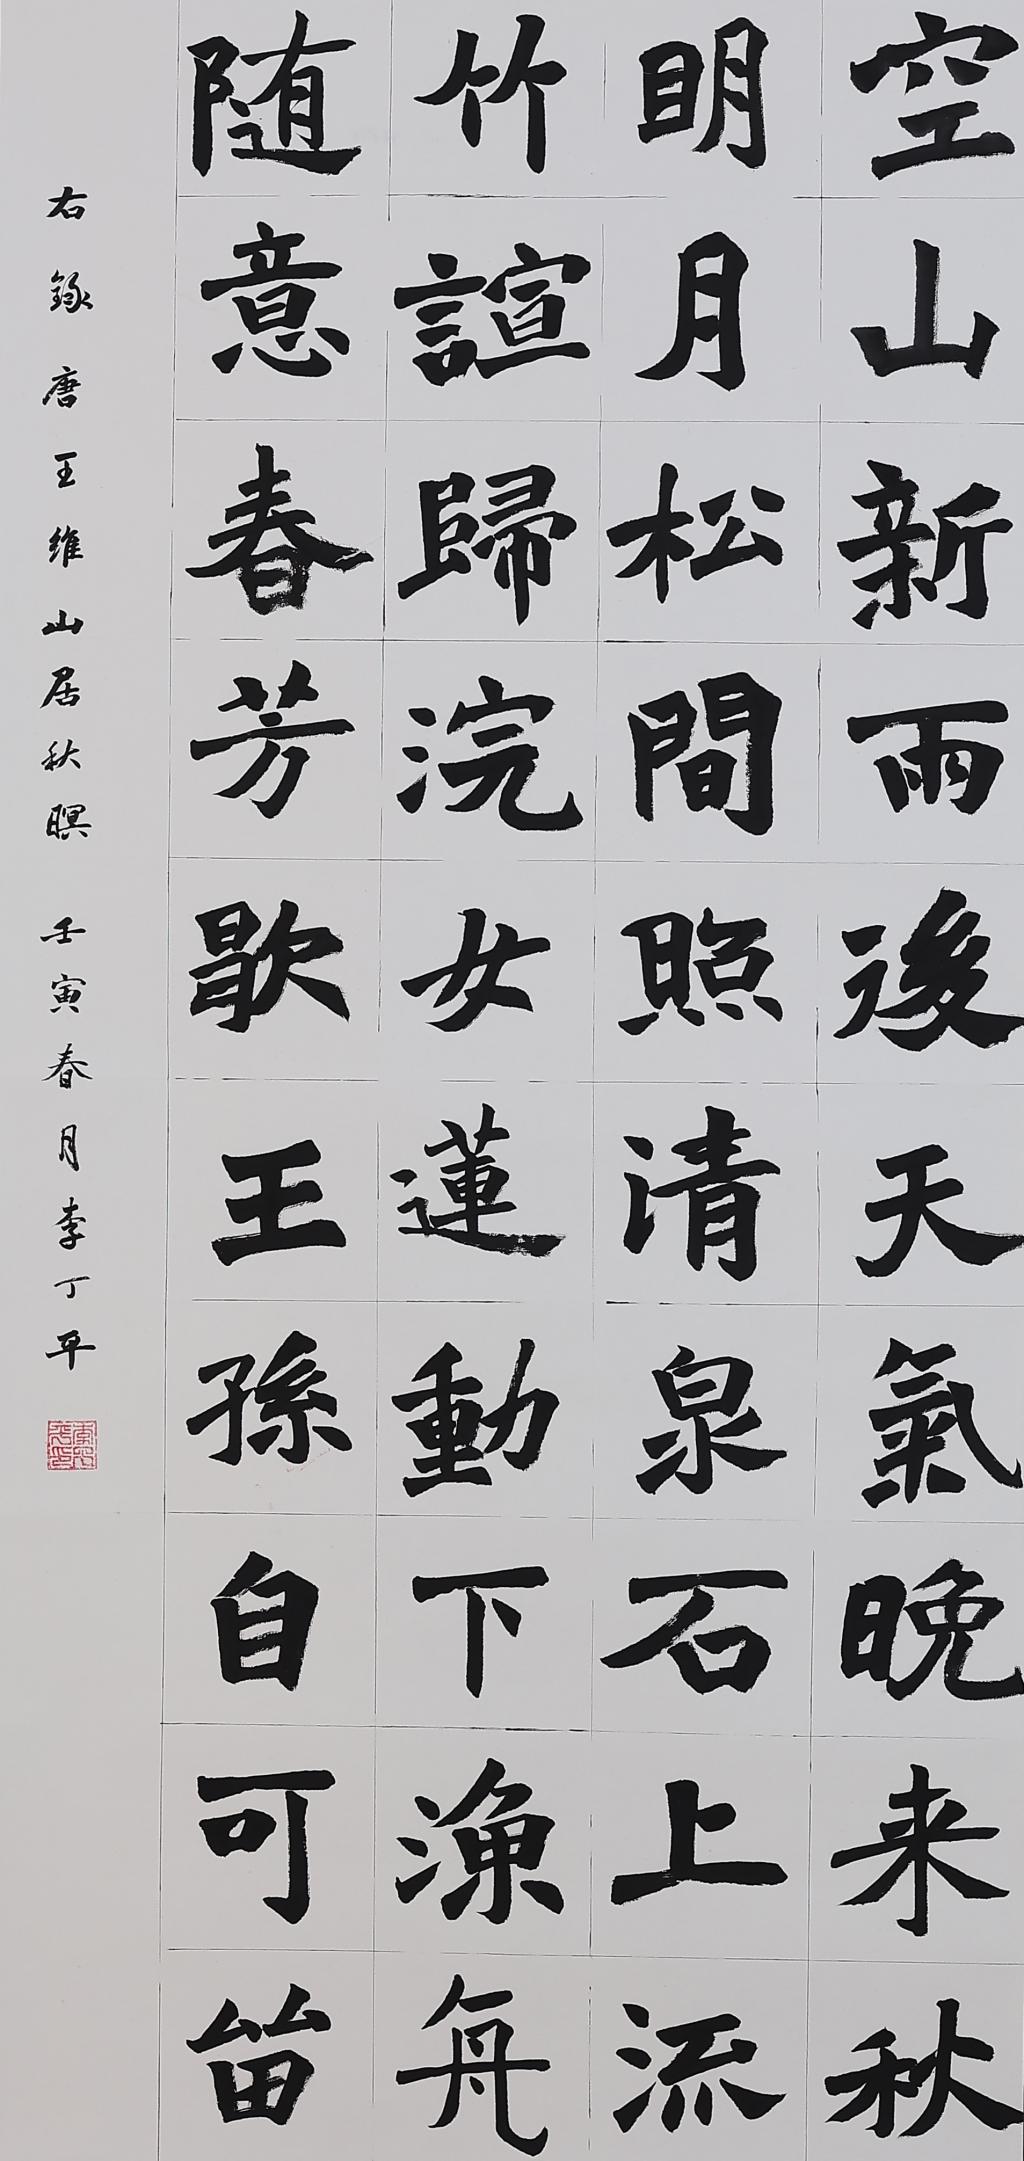 空山新雨後天氣晚来秋
明月松間照清泉石上流
竹諠歸浣女蓮動下漁舟
随意春芳歇王孫自可留
右録唐王維山居秋暝 壬寅春月李丁平